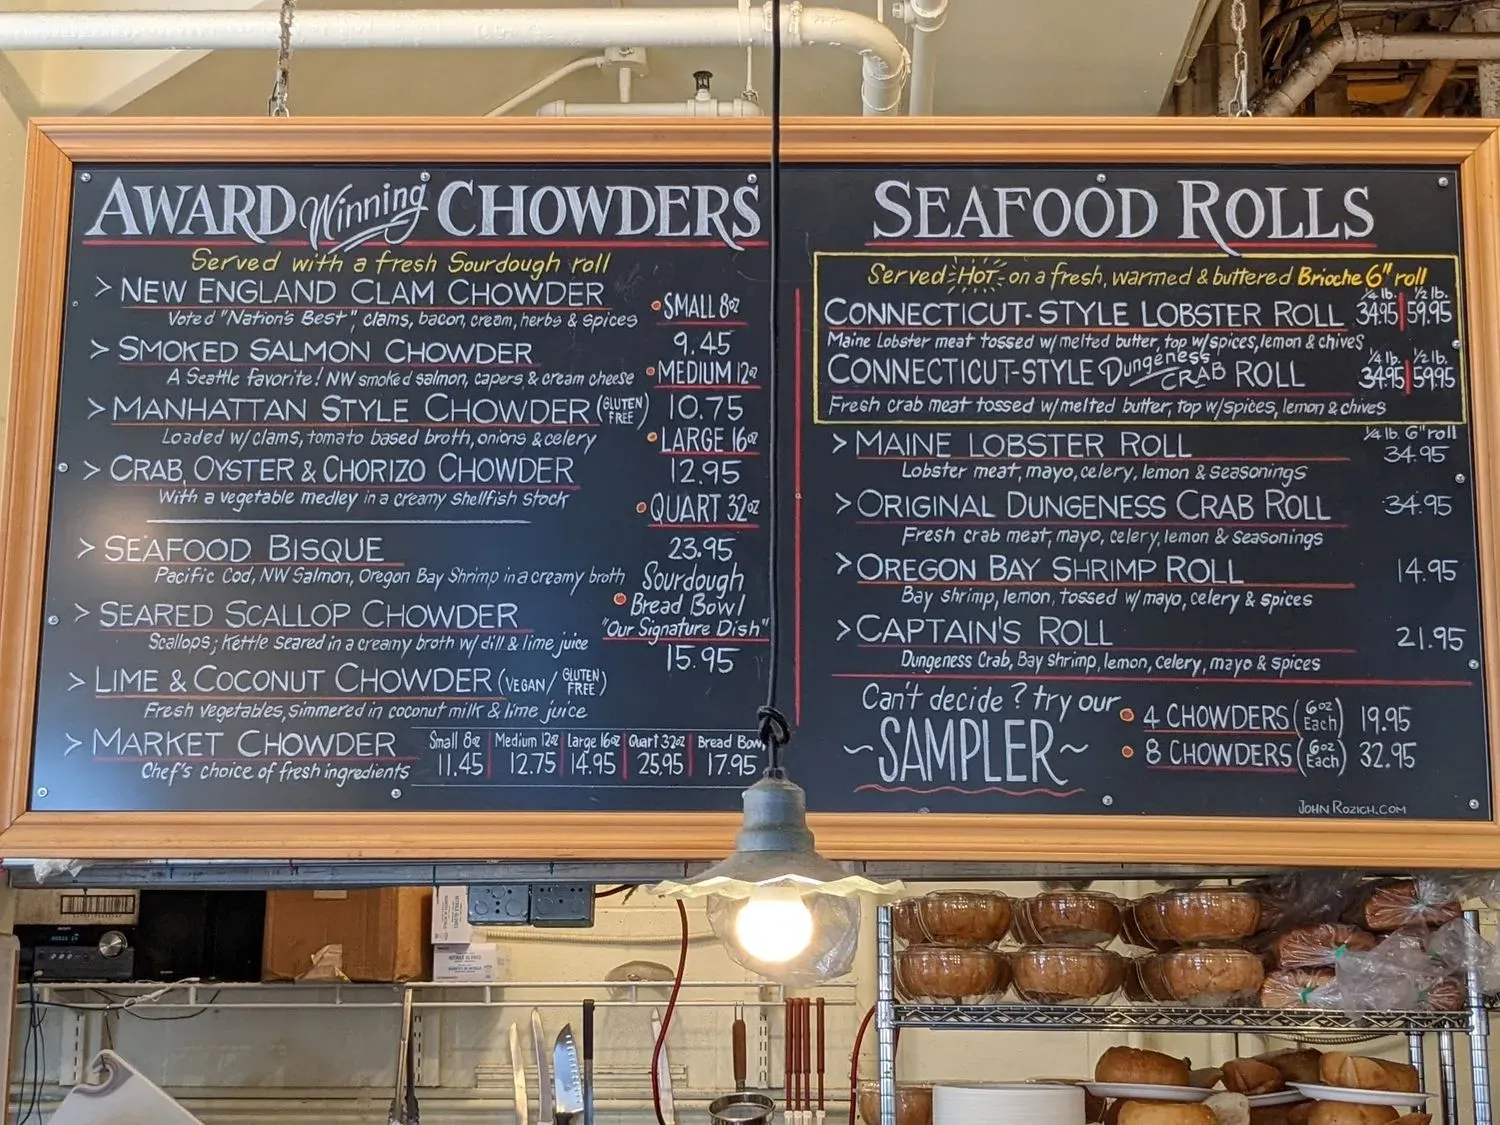 AWARD Winning CHOWDERS
Served with a fresh Sourdough roll
> NEW ENGLAND CLAM CHOWDER
Voted "Nation's Best", clams, bacon, cream, herbs & spices
> SMOKED SALMON CHOWDER
A Seattle favorite! NW smoked salmon, capers & cream cheese
> MANHATTAN STYLE CHOWDER (GLUTEN FREE)
Loaded w/ clams, tomato based broth, onions & celery
> CRAB, OYSTER & CHORIZO CHOWDER
With a vegetable medley in a creamy shellfish stock
> SEAFOOD BISQUE
Pacific Cod, NW Salmon, Oregon Bay Shrimp in a creamy broth
> SEARED SCALLOP CHOWDER
Scallops; Kettle seared in a creamy broth w/ dill & lime juice
> LIME & COCONUT CHOWDER (VEGAN/ GLUTEN FREE)
Fresh vegetables, simmered in coconut milk & lime juice
> MARKET CHOWDER
Chef's choice of fresh ingredients
Small 8oz Medium 12oz Large 16oz Quart 32oz Bread Bowl
11.45 12.75 14.95 25.95 17.95
SMALL 8oz
9.45
MEDIUM 12oz
10.75
LARGE 16oz
12.95
QUART 32oz
23.95
Sourdough
Bread Bowl
"Our Signature Dish"
15.95
SEAFOOD ROLLS
Served HOT on a fresh, warmed & buttered Brioche 6" roll
1/4 lb. 1/2 lb.
CONNECTICUT-STYLE LOBSTER ROLL 34.95 59.95
Maine Lobster meat tossed w/ melted butter, top w/ spices, lemon & chives
1/4 lb. 1/2 lb.
CONNECTICUT-STYLE Dungeness CRAB ROLL 34.95 59.95
Fresh crab meat tossed w/ melted butter, top w/ spices, lemon & chives
1/4 lb. 6" roll
> MAINE LOBSTER ROLL 34.95
Lobster meat, mayo, celery, lemon & seasonings
> ORIGINAL DUNGENESS CRAB ROLL 34.95
Fresh crab meat, mayo, celery, lemon & seasonings
> OREGON BAY SHRIMP ROLL 14.95
Bay shrimp, lemon, tossed w/ mayo, celery & spices
> CAPTAIN'S ROLL 21.95
Dungeness Crab, Bay shrimp, lemon, celery, mayo & spices
Can't decide? try our
~SAMPLER~
4 CHOWDERS (6oz Each) 19.95
8 CHOWDERS (6oz Each) 32.95
JOHN ROZICH.COM